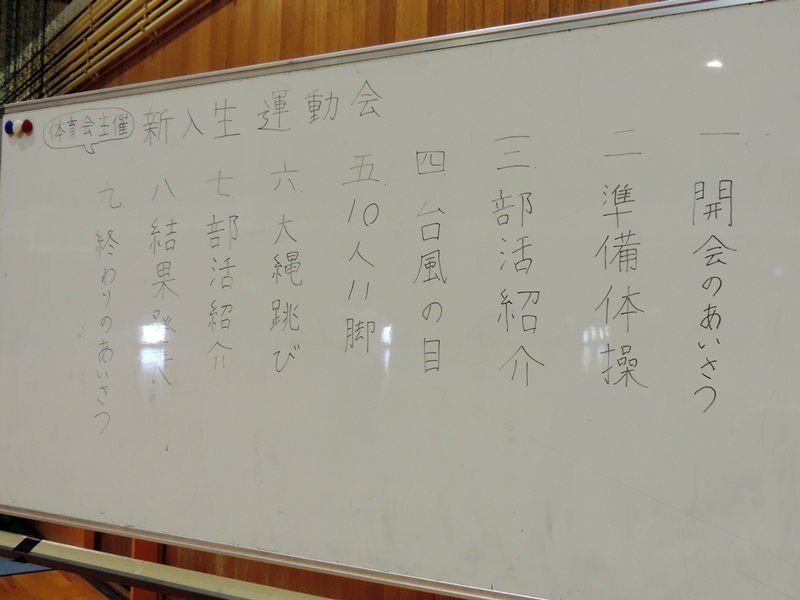 体育会主催
新入生運動会
一 開会のあいさつ
二 準備体操
三 部活紹介
四 台風の目
五 10人11脚
六 大縄跳び
七 部活紹介
八 結果発表
九 終わりのあいさつ